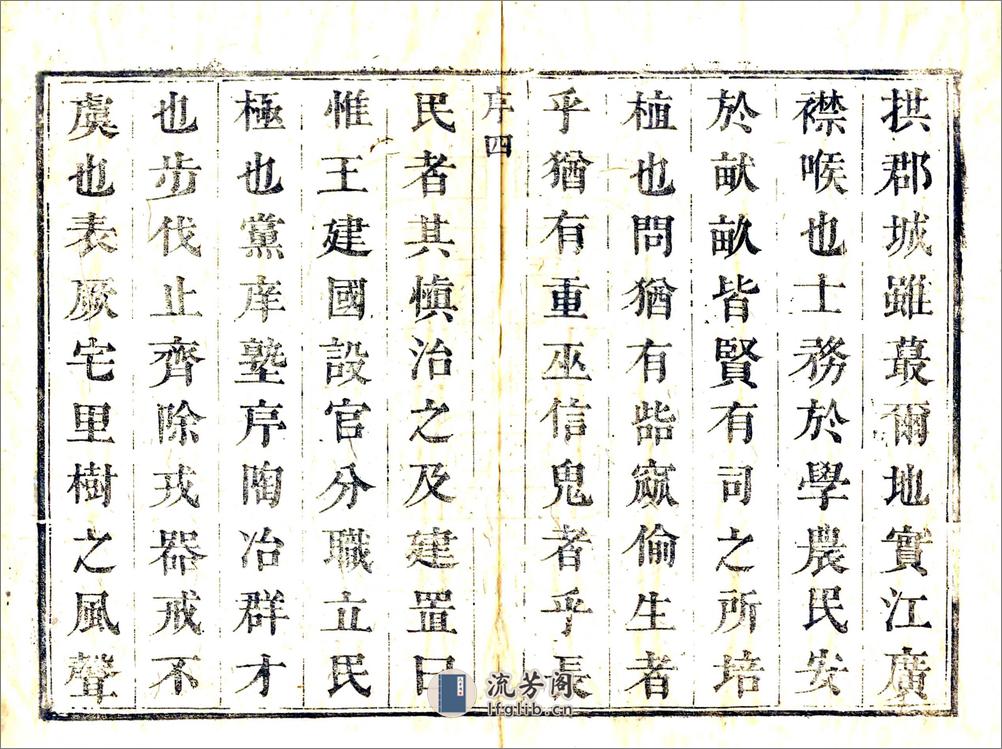 拱郡城雖蕞爾地實江廣
襟喉也士務於學農民安
於畎畝皆賢有司之所培
植也問猶有呰窳偷生者
乎猶有重巫信鬼者乎長
序四
民者其慎治之及建置曰
惟王建國設官分職立民
極也黨庠塾序陶冶群才
也步伐止齊除戎器戒不
虞也表厥宅里樹之風聲
流芳阁
lfglib.cn